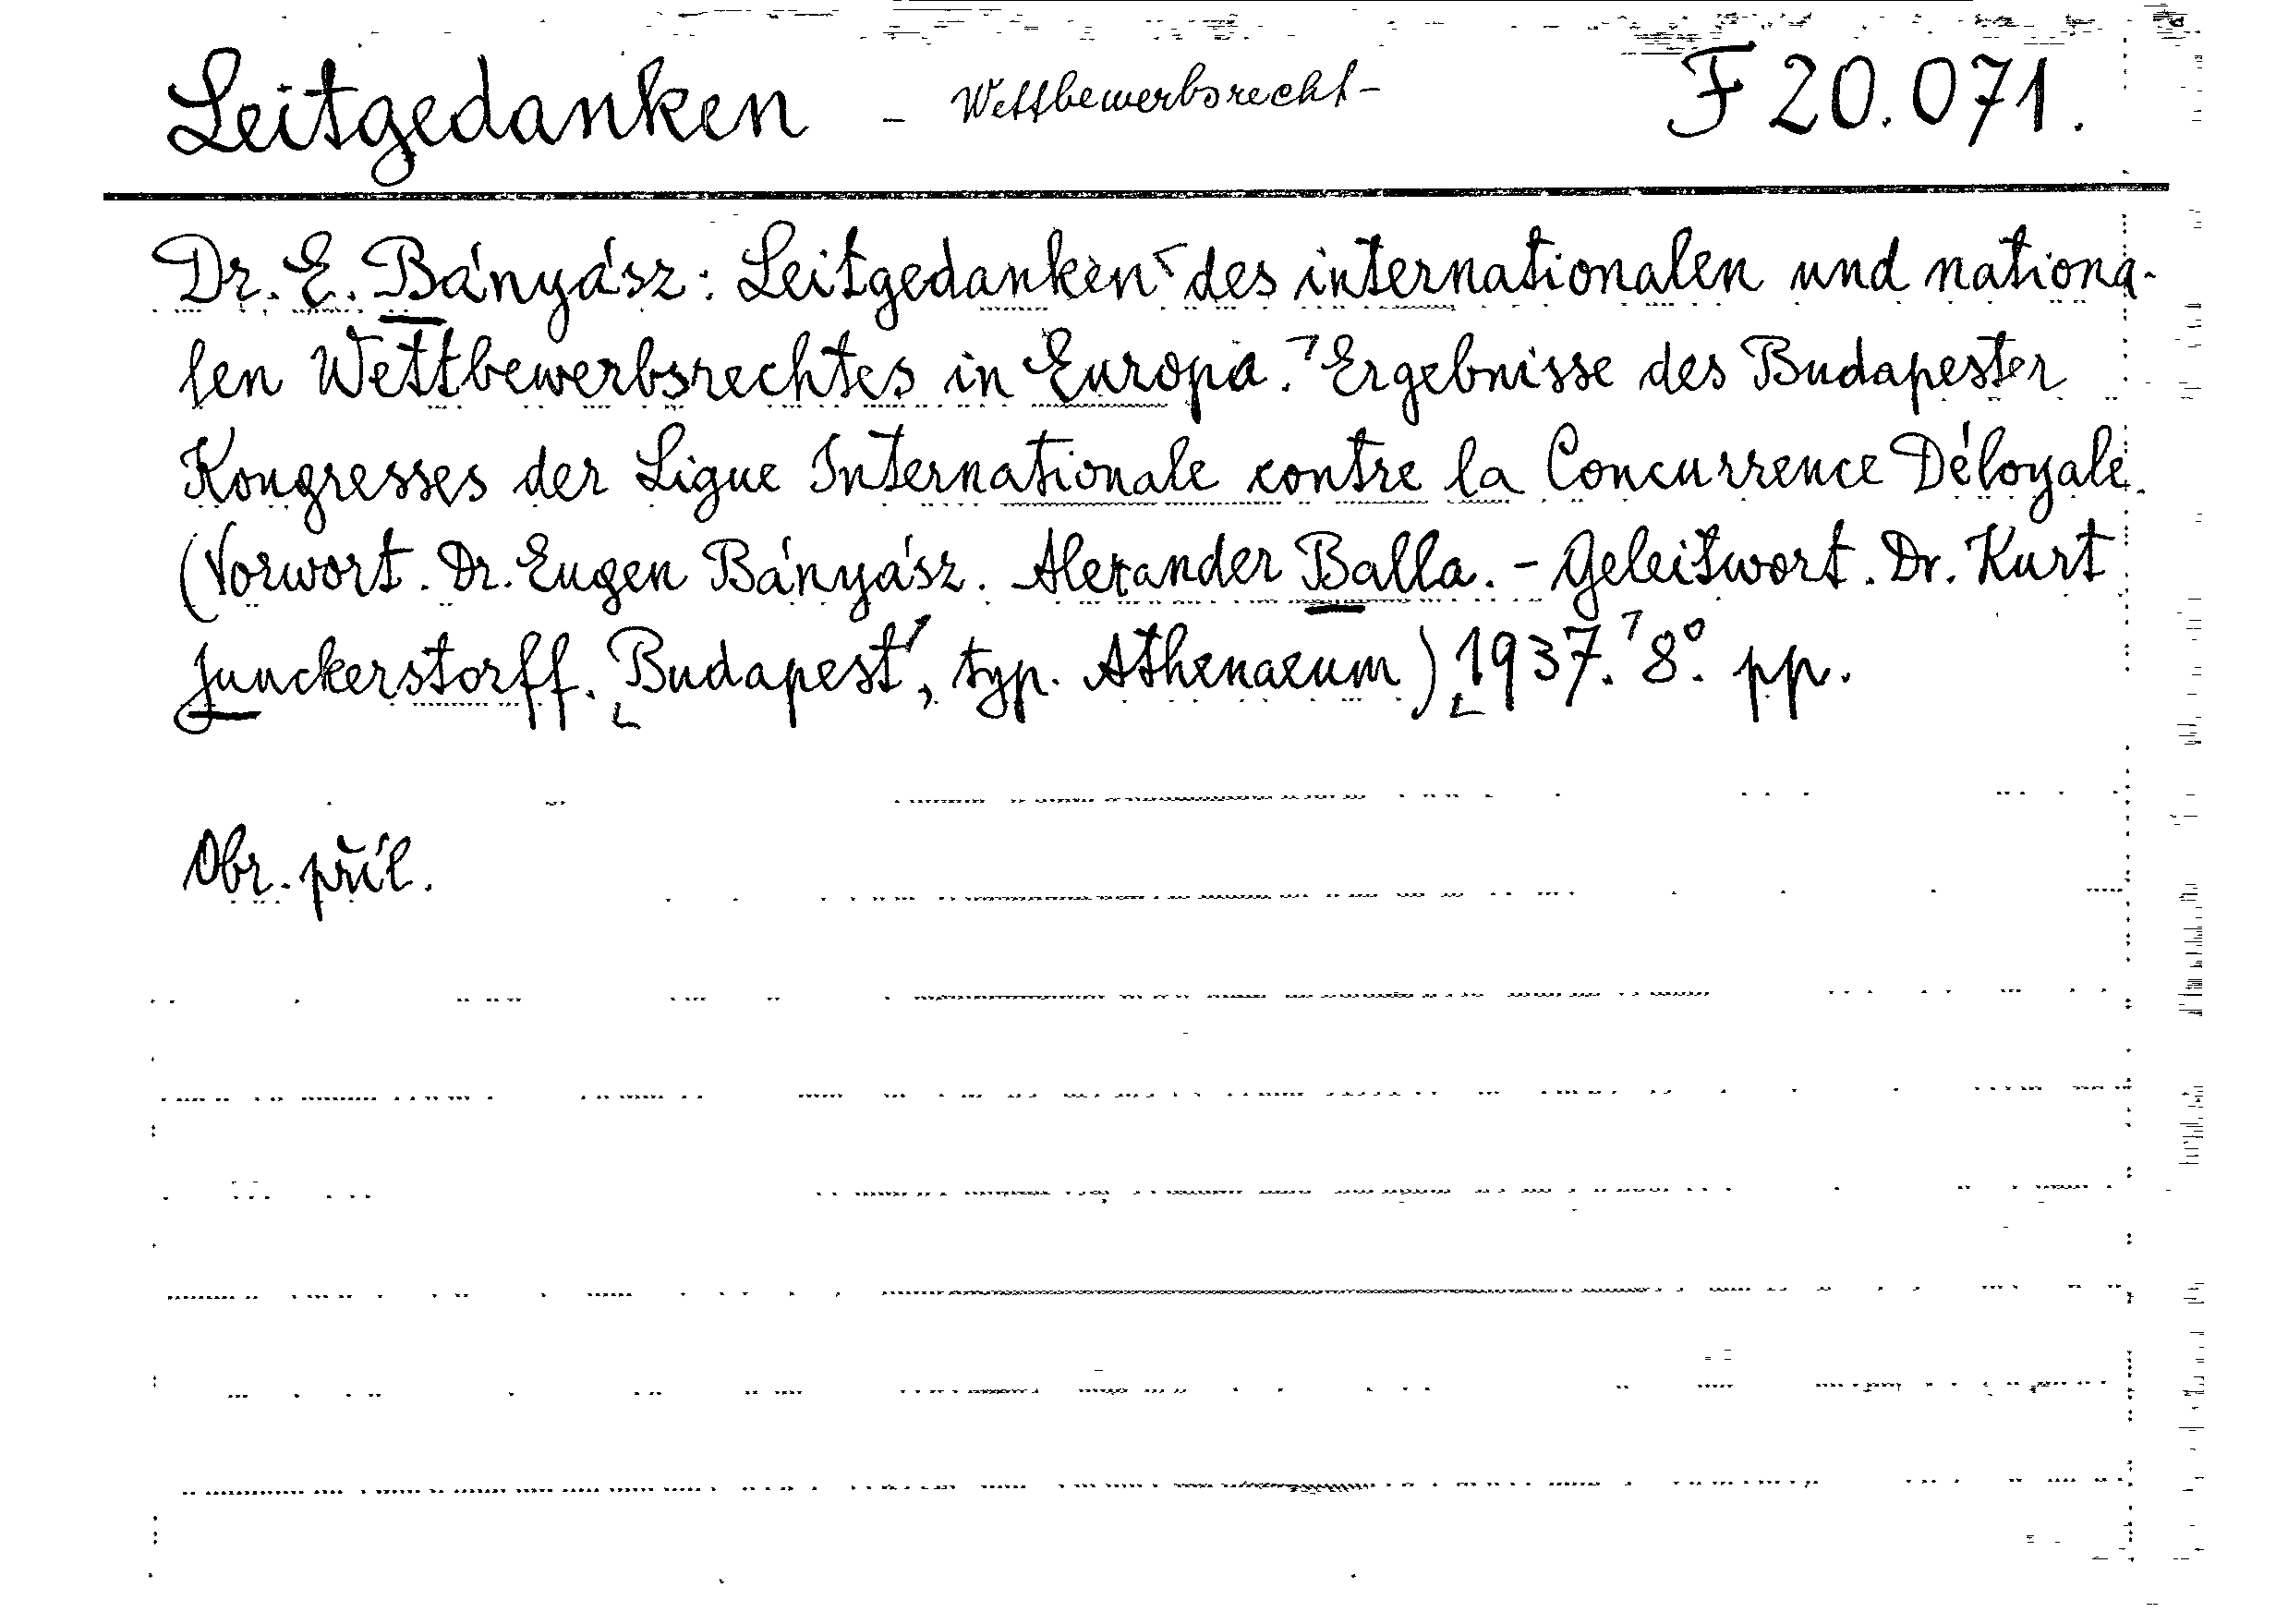 Leitgedanken - Wettbewerbsrecht - F 20.071.
Dr. E. Bányász: Leitgedanken des internationalen und nationa-
len Wettbewerbsrechtes in Europa. Ergebnisse des Budapester
Kongresses der Ligue Internationale contre la Concurrence Déloyale.
(Vorwort. Dr. Eugen Bányász. Alexander Balla. - Geleitwort. Dr. Kurt
Junckerstorff. Budapest, typ. Athenaeum) 1937. 8°. pp.
Obr. příl.